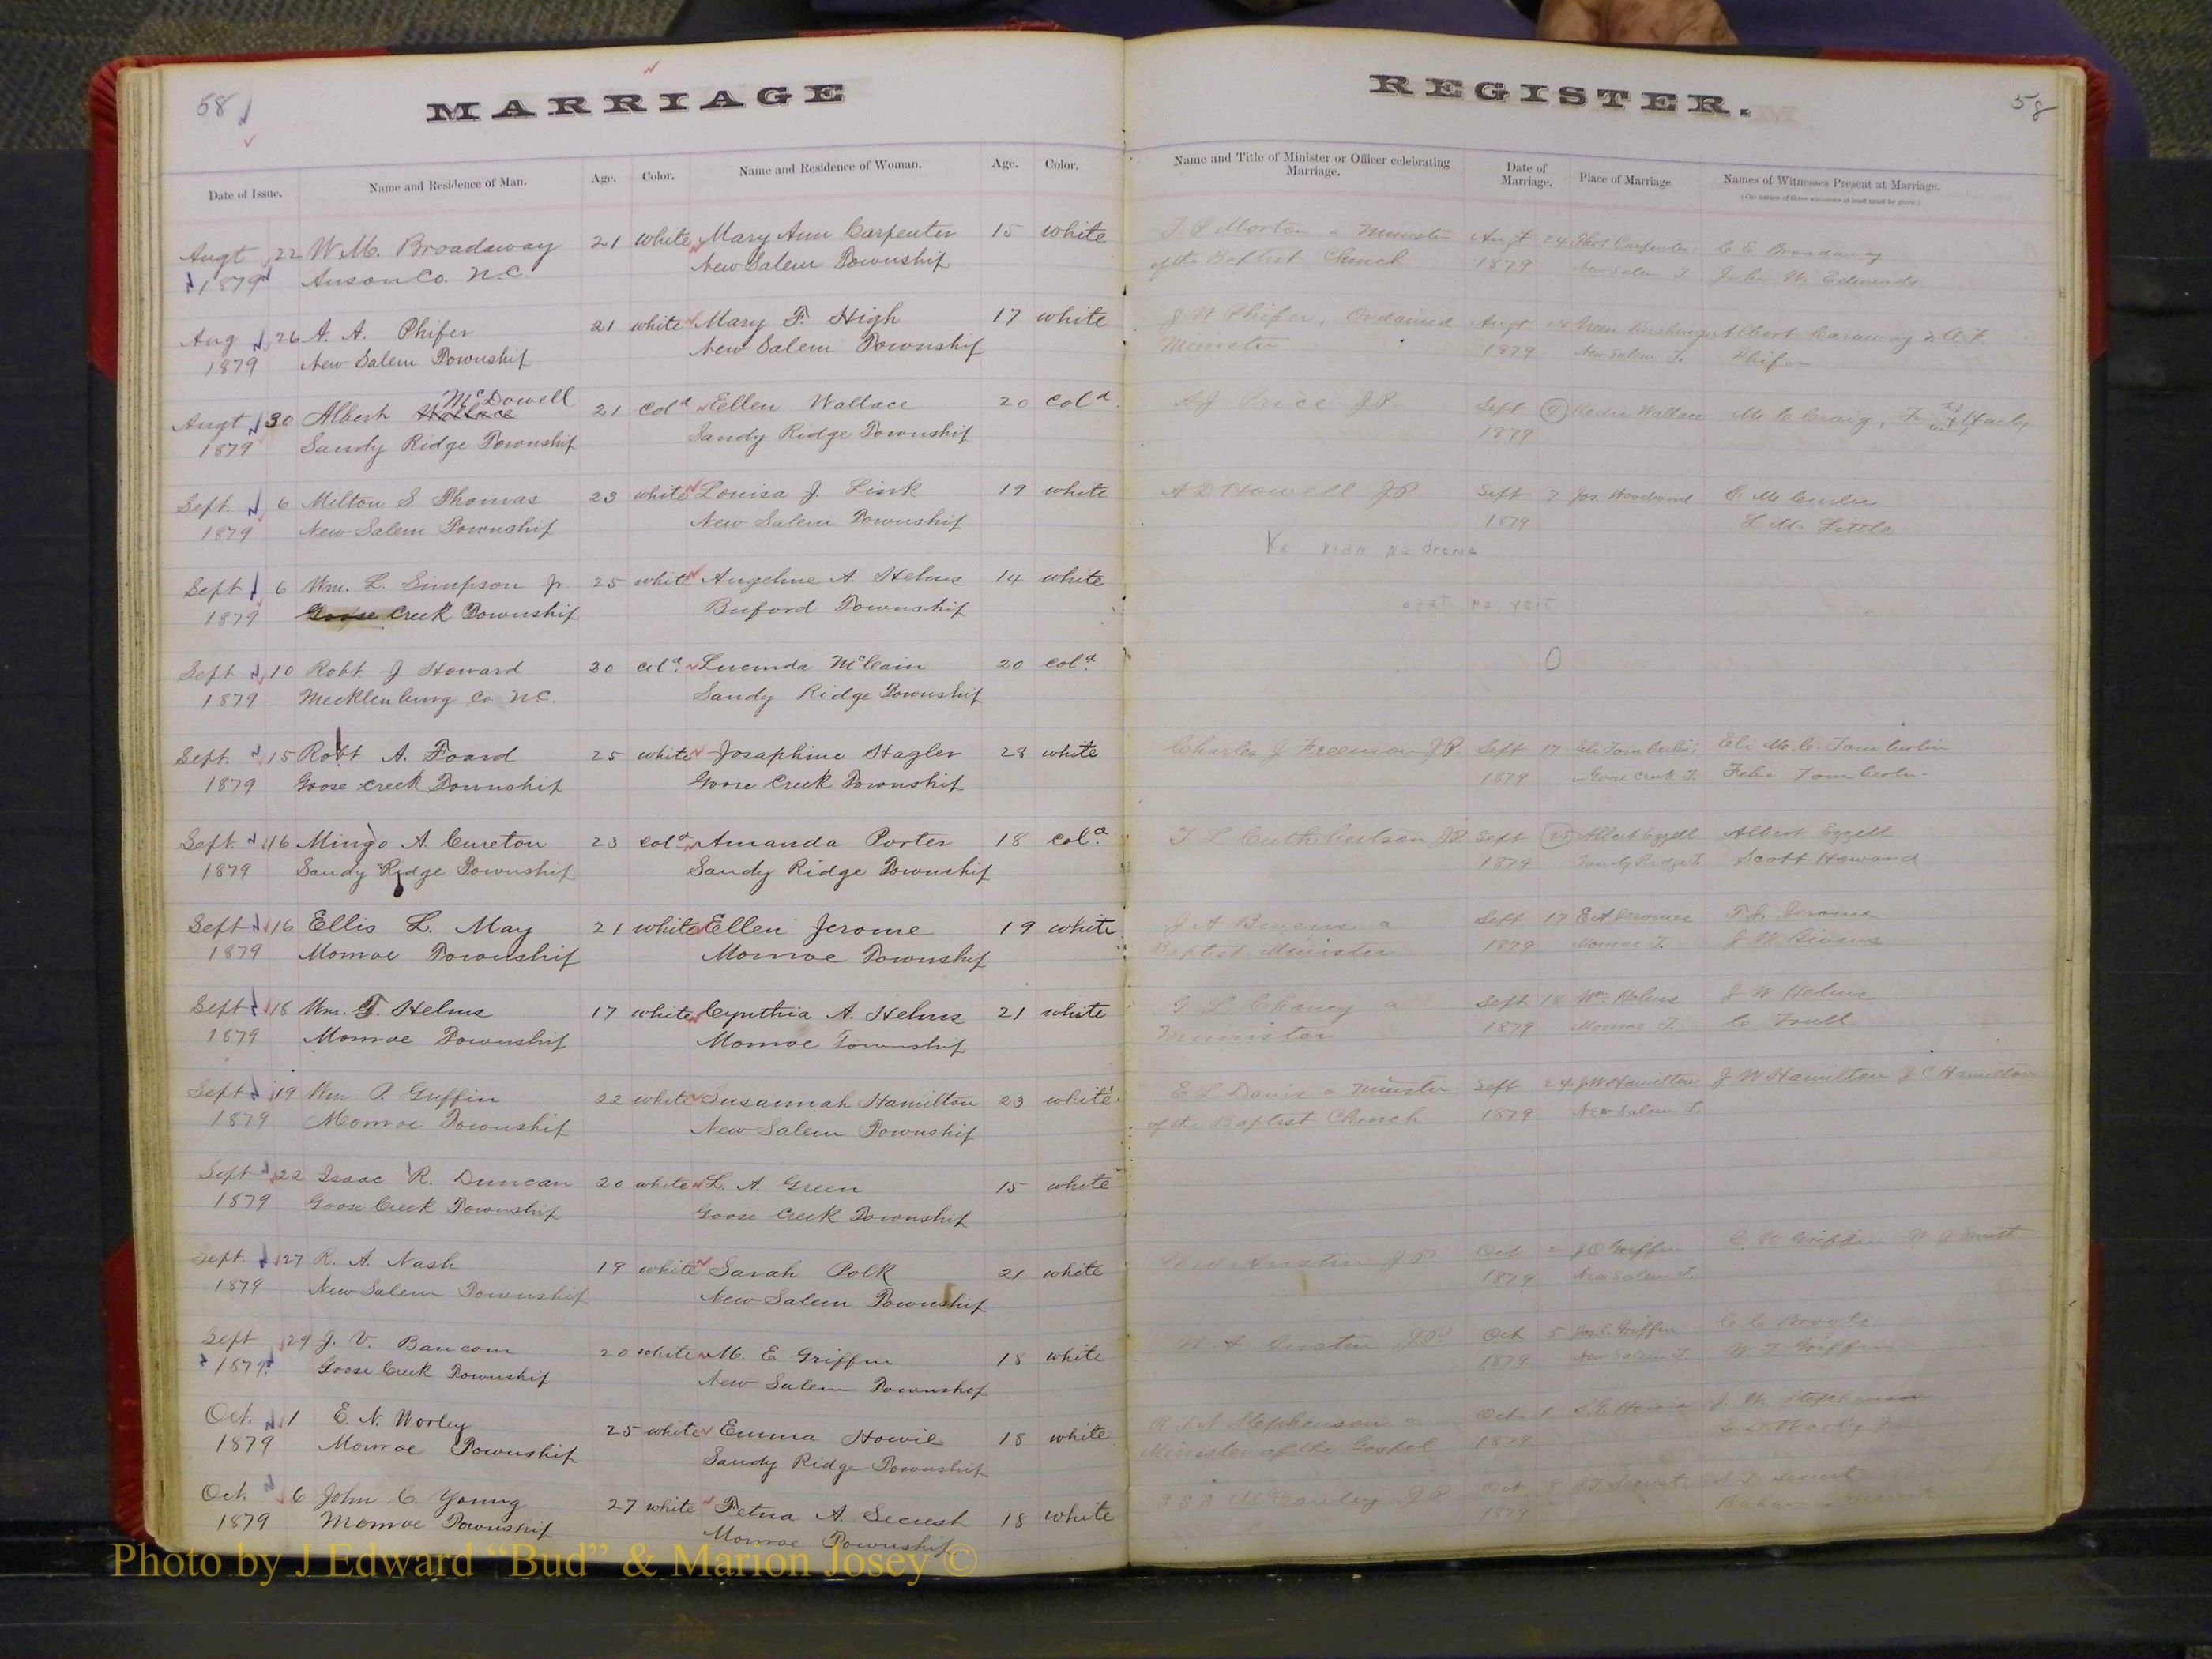 58
MARRIAGE
REGISTER.
58
Date of Issue. Name and Residence of Man. Age. Color. Name and Residence of Woman. Age. Color.
Name and Title of Minister or Officer celebrating Marriage. Date of Marriage. Place of Marriage. Names of Witnesses Present at Marriage.
Augt 22 W. M. Broadaway 21 white Mary Ann Carpenter 15 white
1879 Anson Co. N.C. New Salem Township
Morton a Minister Augt 24 Thos Carpenter C E Broadaway
of the Baptist Church 1879 New Salem T. John W. Edwards
Aug 26 A. A. Phifer 21 white Mary F. High 17 white
1879 New Salem Township New Salem Township
J W Phifer, Ordained Augt 28 Albert Caraway & A. F.
Minister 1879 New Salem T. Phifer
McDowell
Augt 30 Albert Wallace 21 cold Ellen Wallace 20 cold
1879 Sandy Ridge Township Sandy Ridge Township
A J Price J.P. Sept Wallace M. C. Craig,
1879
Sept 6 Milton S. Thomas 23 white Louisa J. Link 19 white
1879 New Salem Township New Salem Township
A D Howell JP Sept 7 Jas. Woodward
1879 L. M. Little
Sept 6 Wm. L. Simpson Jr 25 white Angeline A. Helms 14 white
1879 Goose Creek Township Buford Township
Sept 10 Robt J Howard 30 cold Lucinda McCain 20 cold
1879 Mecklenburg Co N.C. Sandy Ridge Township
Sept. 15 Robt A. Foard 25 white Josaphine Hagler 28 white
1879 Goose Creek Township Goose Creek Township
Charles J Freeman J.P. Sept 17 Eli Tomberlin Eli M. C. Tomberlin
1879 Goose Creek T. Tomberlin
Sept. 16 Mingo A. Cureton 23 cold Amanda Porter 18 cold
1879 Sandy Ridge Township Sandy Ridge Township
T L Cuthbertson JP. Sept 25 Albert Ezzell Albert Ezzell
1879 Sandy Ridge T. Scott Howard
Sept 16 Ellis L. May 21 white Ellen Jerome 19 white
1879 Monroe Township Monroe Township
J A Bivens a Sept 17 Jerome
Baptist Minister 1879 Monroe T. J W Bivens
Sept 18 Wm. T. Helms 17 white Cynthia A. Helms 21 white
1879 Monroe Township Monroe Township
G L Chaney a Sept 18 Wm. Helms J W Helms
Minister 1879 Monroe T.
Sept 19 Wm P. Griffin 22 white Susannah Hamilton 23 white
1879 Monroe Township New Salem Township
E L Davis a Minister Sept 24 J W Hamilton J W Hamilton J C Hamilton
of the Baptist Church 1879 New Salem T.
Sept 22 Isaac R. Duncan 20 white L. A. Green 15 white
1879 Goose Creek Township Goose Creek Township
Sept. 27 R. A. Nash 19 white Sarah Polk 21 white
1879 New Salem Township New Salem Township
Austin J P Oct 2 J C Griffin C. W Griffin
1879 New Salem T.
Sept 29 J. V. Baucom 20 white M. E Griffin 18 white
1879 Goose Creek Township New Salem Township
Austin JP Oct 5 Jas. C. Griffin
1879 New Salem T. Griffin
Oct. 1 E. N. Worley 25 white Emma Howie 18 white
1879 Monroe Township Sandy Ridge Township
Stephenson a Oct 1 Howie J. W. Stephenson
Minister of the Gospel 1879
Oct. 6 John C. Young 27 white Fetna A. Secrest 18 white
1879 Monroe Township Monroe Township
McCauley J P Oct. Secrest Secrest
1879
Photo by J Edward “Bud” & Marion Josey ©